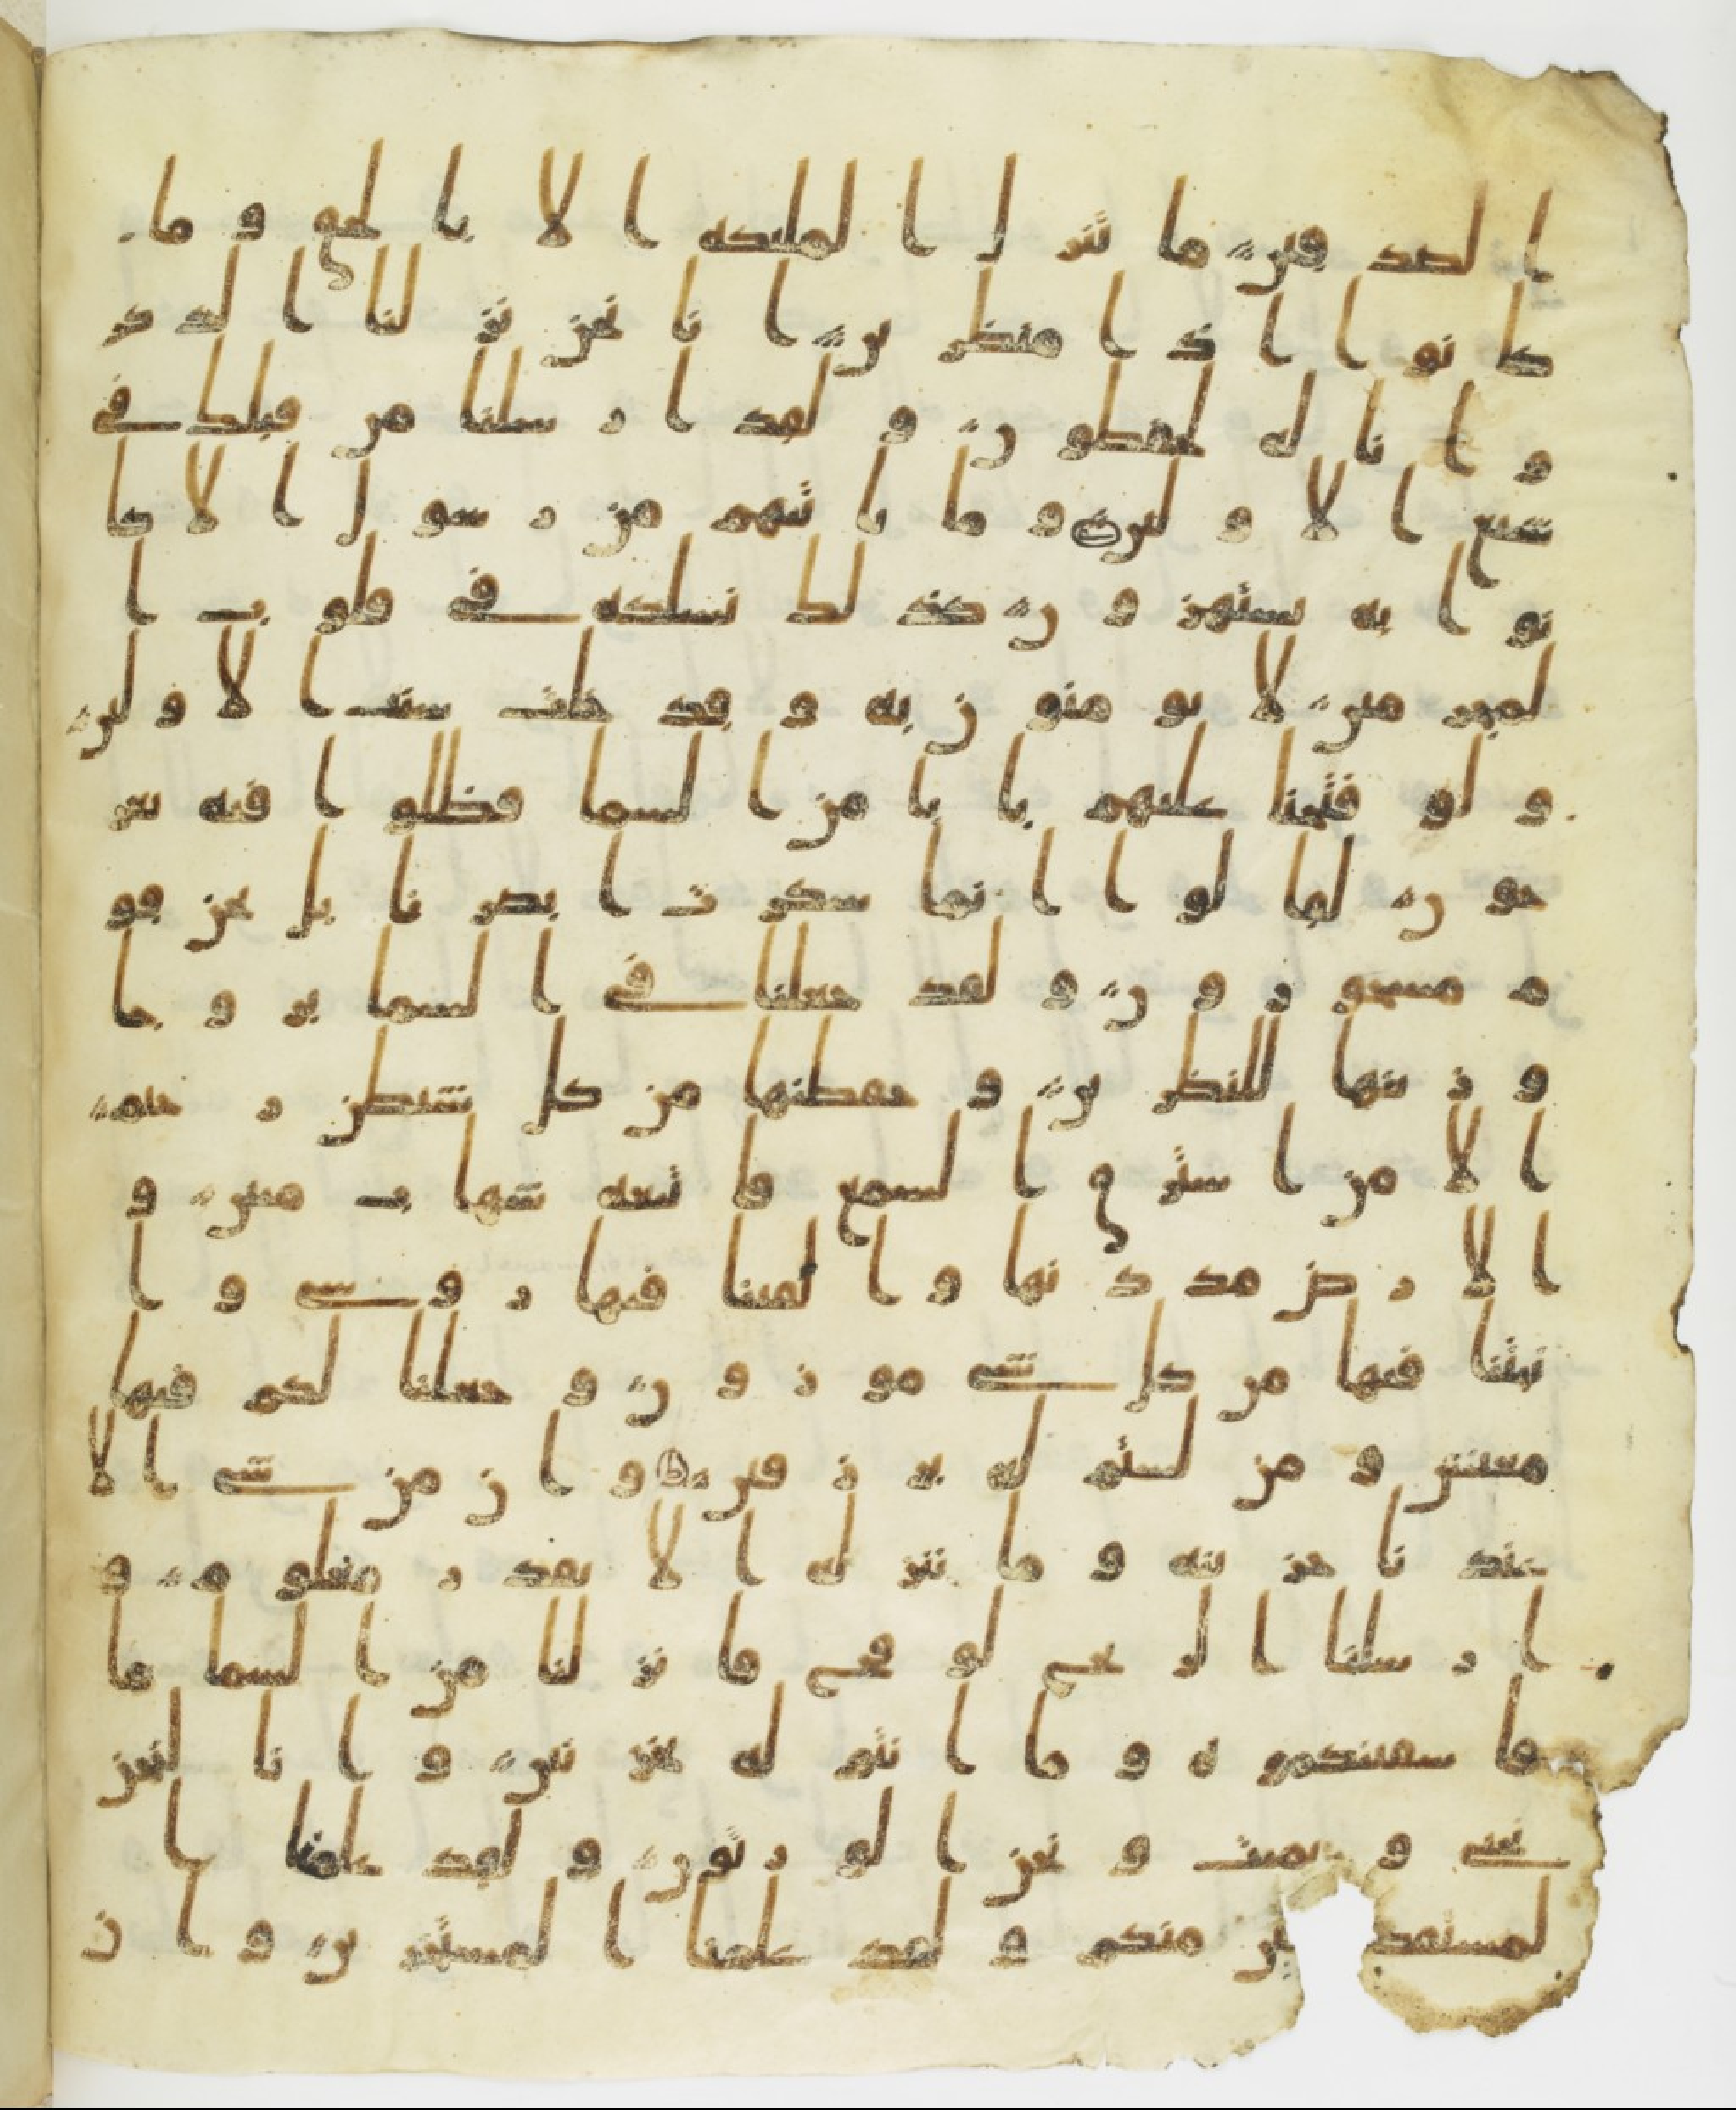 ا لصد قين ما ننز ل ا لمليكه ا لا با لحق و ما
كا نو ا ا ذ ا منظر ين ا نا نحن نز لنا ا لذ كر
و ا نا له لحفظو ن و لقد ا ر سلنا من قبلك في
شيع ا لا و لين و ما يا تيهم من ر سو ل ا لا كا
نو ا به يستهز و ن كذ لك نسلكه في قلو ب ا
لمجر مين لا يو منو ن به و قد خلت سنت ا لا و لين
و لو فتحنا عليهم با با من ا لسما فظلو ا فيه يعر
جو ن لقا لو ا ا نما سكر ت ا بصر نا بل نحن قو
م مسحو ر و ن و لقد جعلنا في ا لسما بر و جا
و ز ينها للنظر ين و حفظنها من كل شيطن ر جيم
ا لا من ا ستر ق ا لسمع فا تبعه شها ب مبين و
ا لا ر ض مد د نها و ا لقينا فيها ر و سي و ا
نبتنا فيها من كل شي مو ز و ن و جعلنا لكم فيها
معيش و من لستم له بر ز قين و ا ن من شي ا لا
عند نا خز ينه و ما ننز له ا لا بقد ر معلو م و
ا ر سلنا ا لر يح لو قح فا نز لنا من ا لسما ما
فا سقينكمو ه و ما ا نتم له بخز نين و ا نا لنحن
نحي و نميت و نحن ا لو ر ثو ن و لقد علمنا ا
لمستقد مين منكم و لقد علمنا ا لمستخر ين و ا ن